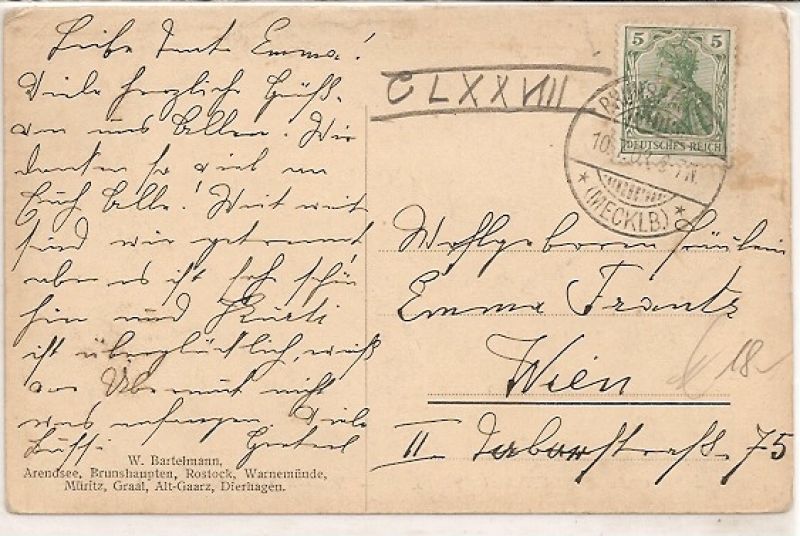 Liebe Tante Emma!
Viele herzliche Grüße
von uns Allen. Wir
denken so viel an
Euch Alle! Weit weit
sind wir getrennt
aber es ist sehr schön
hier und Kurti
ist überglücklich, weiß
vor Übermut nicht
was anfangen. Viele
Bussi Gretel
W. Bartelmann,
Arendsee, Brunshaupten, Rostock, Warnemünde,
Müritz, Graal, Alt-Gaarz, Dierhagen.
CLXXVIII
5 5
DEUTSCHES REICH
(MECKLB)
Wohlgeboren Fräulein
Emma Frantz
Wien
II. Taborstraße 75
18